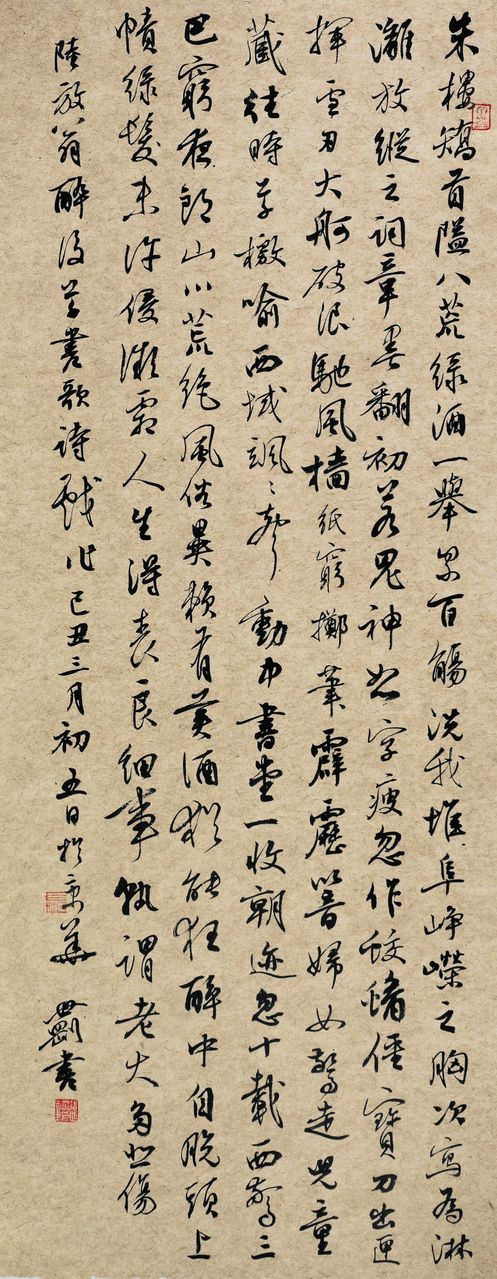 朱樓矯首隘八荒綠酒一舉累百觴洗我堆阜崢嶸之胸次寫為淋
灕放縱之詞章墨翻初若鬼神怒字瘦忽作蛟螭僵寶刀出匣
揮雪刃大舸破浪馳風檣紙窮擲筆霹靂響婦女驚走兒童
藏往時草檄喻西域颯〻聲動中書堂一收朝迹忽十載西鶩三
巴窮夜郎山川荒絕風俗異賴有美酒猶能狂醉中自脫頭上
幘綠髮未許侵微霜人生得喪良細事孰謂老大多悲傷
陸放翁醉後草書歌詩戲作己丑三月初五日於京華 書